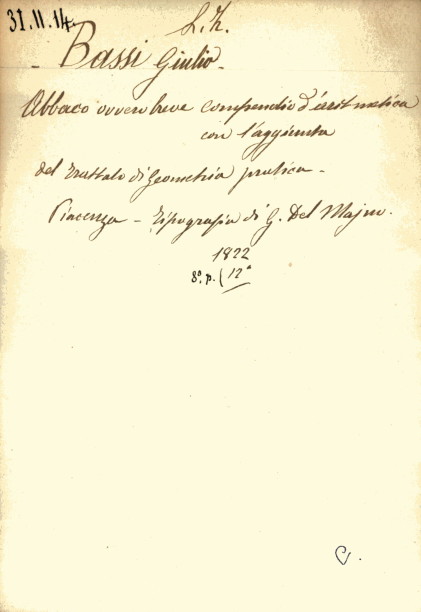 31.11.14.
L. Z.
- Bassi Giulio -
Abbaco ovvero breve compendio d'aritmetica
con l'aggiunta
del trattato di Geometria pratica -
Piacenza - Tipografia di G. Del Majno.
1822
8º. p. (12ª
C.